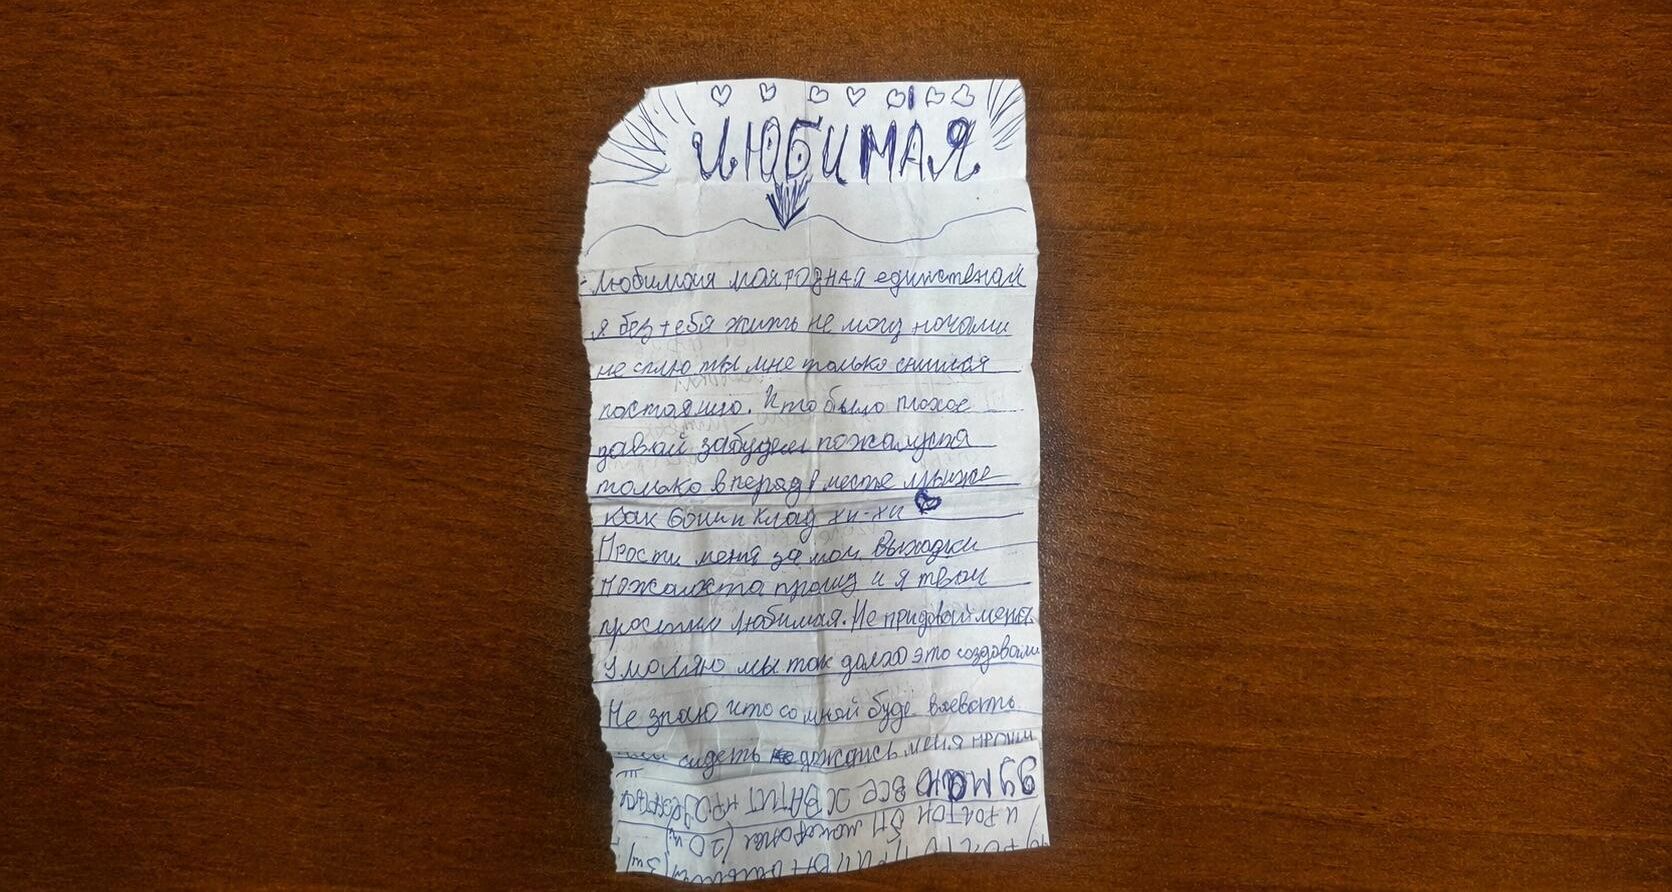 ЛЮБИМАЯ
Любимая моя РОДНАЯ единственая
я без тебя жить не могу ночами
не сплю ты мне только снишся
постаяно. Что было плохое
давай забудем пожалуста
только вперяд вместе мы же
как бони и клад хи-хи
Прости меня за мои выходки
пожалоста прошу и я твои
простил любимая. Не придовай меня
Умоляю мы так долго это создовали
Не знаю что со мной буде воевать
сидеть дождись меня прошу
думаю ВСЕ ХВАТИТ
И РОЛТОН БП (20